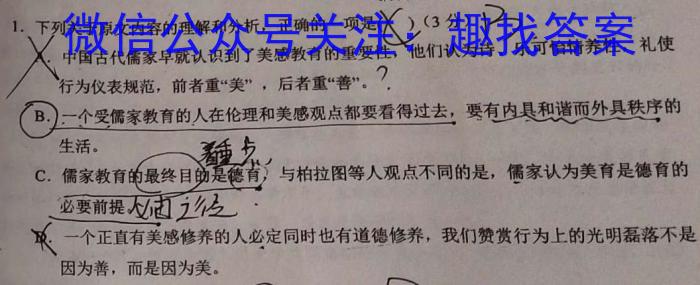 1. 下列关于原文内容的理解和分析，正确的一项是( )(3分)
微信公众号关注：趣找答案
A. 中国古代儒家早就认识到了美感教育的重要性，他们认为诗、乐可怡情养性，礼使
行为仪表规范，前者重“美”，后者重“善”。?
B. 一个受儒家教育的人在伦理和美感观点都要看得过去，要有内具和谐而外具秩序的
生活。
着重点
C. 儒家教育的最终目的是德育，与柏拉图等人观点不同的是，儒家认为美育是德育的
必要前提。
D. 一个正直有美感修养的人必定同时也有道德修养，我们赞赏行为上的光明磊落不是
因为善，而是因为美。